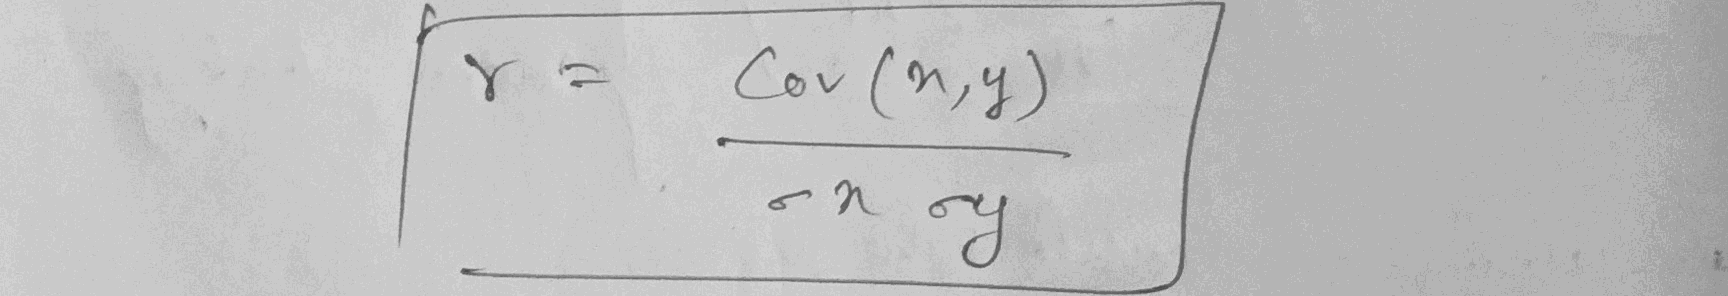 r = Cov (x, y)
σx σy